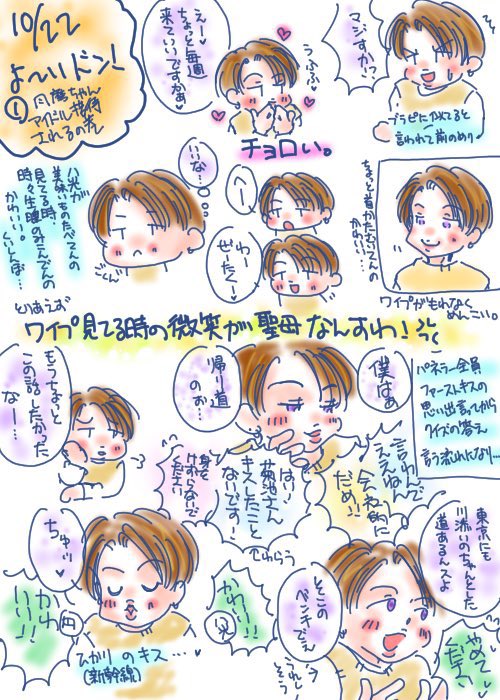 10/22
よ〜いドン!
①
アイドル接待
されるの巻
えー♡
ちょっと毎週
来ていいですかぁ♡
うふふ♡
マジすか!?
ブラピに似てると
言われて前のめり
チョロい。
八光が
美味いものたべてんの
見てる時、
時々生唾のみこんでんの
かわいい。
くいしんぼ…
いいな…
ごくん
へー
わー
ぜーたく♡
ちょっと首かたむいてんの
かわいい…
ワイプがもれなく
めんこい。
とりあえず
ワイプ見てる時の微笑が聖母なんすわ!
もうちょっと
この話したかった
なー…
帰り道
のぉ…
僕はぁ
言わんで
ええねん
会社的に
だめ!!
はい!
菊池さん
キスしたこと
ないです!
身を
けずらないで
ください
パネラー全員
ファーストキスの
思い出言ってから
クイズの答え
言う流れになり…
東京にも
川添いのちゃんとした
道あるんスよ
そこの
ベンチでぇ
やめて
ください
うれしそう
ちゅッ♡
かわ
いい!!
円
かわいー!!
兄
ひかりのキス…♡
(新幹線)